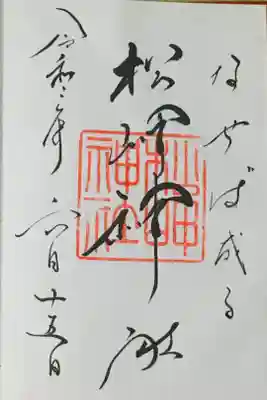 なせば成る
松岬神社
令和二年 六月十五日
松岬神社